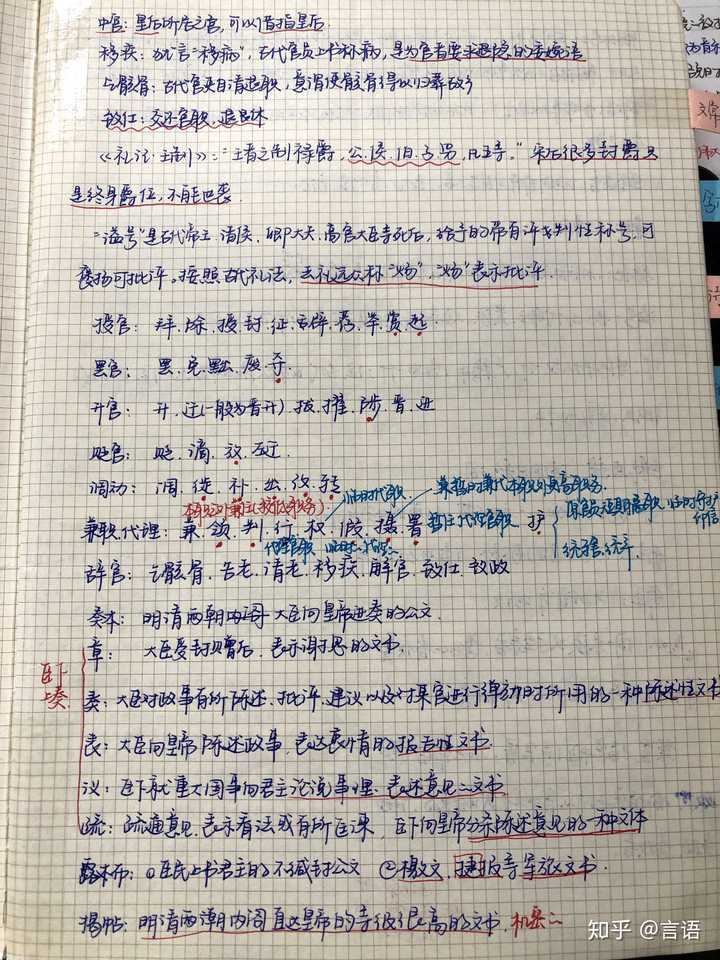 中宫：皇后所居之宫，可以借指皇后
移疾：犹言“移病”，古代官员上书称病，是为官者要求退隐的委婉语
乞骸骨：古代官吏自请退职，意谓使骸骨得以归葬故乡
致仕：交还官职，退居休
《礼记·王制》：“王者之制禄爵，公、侯、伯、子、男，凡五等。”宋后很多封爵只
是终身爵位，不能世袭
“谥号”是古代帝王、诸侯、卿大夫、高官大臣等死后，给予的带有评判性称号，可
褒扬可批评。按照古代礼法
授官：拜．除．授．封．征．辟．荐．举．赏．起
罢官：罢．免．黜．废．夺
升官：升．迁（一般为晋升）．拔．擢．陟．晋．进
贬官：贬．谪．放．左迁
调动：调．徙．补．出．改．转
本职之外兼立较低职务）
临时代职
兼暂时兼代本职外更高职务．
兼职．代理：兼．领．判．行．权．假．摄．署
暂立代理官职
护
代理官职
统辖．统率
辞官：乞骸骨．告老．请老．移疾．解官．致仕．致政
奏本：明清两朝内阁大臣向皇帝进奏的公文
章：大臣受封赠后，表示谢恩的文书
臣下
上奏
奏：大臣对政事有所陈述、批评、建议以及对某官进行弹劾时所用的一种陈述性文书
表：大臣向皇帝陈述政事，表达衷情的报告性文书
议：臣下就重大国事向君主论说事理、表述意见之文书
疏：疏通意见，表示看法或有所匡谏，臣下向皇帝分条陈述意见的一种文体
露布：①臣民上书君主的不缄封公文 ②檄文，捷报等军旅文书．
揭帖：明清两朝内阁直达皇帝的等级很高的文书．机密
知乎 @言语